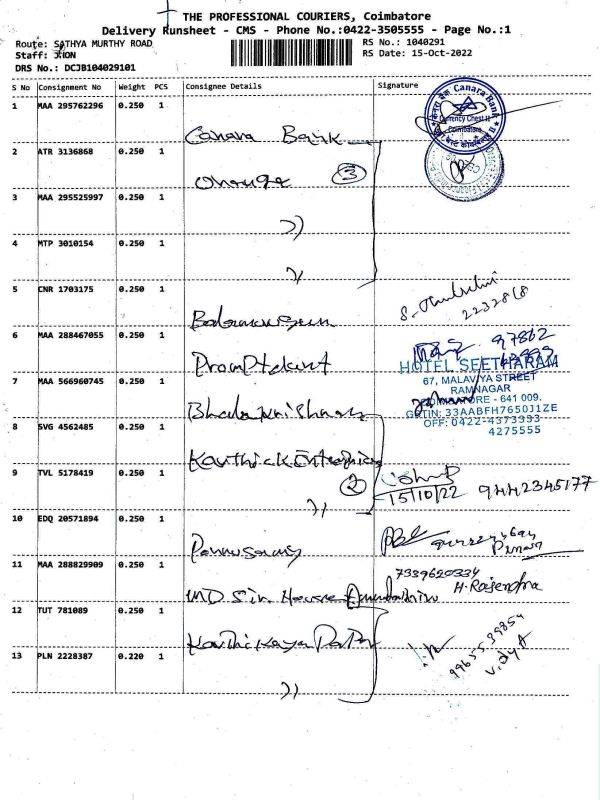 THE PROFESSIONAL COURIERS, Coimbatore
Delivery Runsheet - CMS - Phone No.:0422-3505555 - Page No.:1
Route: SATHYA MURTHY ROAD
RS No.: 1040291
Staff: JION
RS Date: 15-Oct-2022
DRS No.: DCJB104029101
S No Consignment No Weight PCS Consignee Details Signature
1 MAA 295762296 0.250 1
Canara Bank
केनरा बैंक Canara Bank
Currency Chest II
Coimbatore
2 ATR 3136868 0.250 1
3
3 MAA 295525997 0.250 1
))
4 MTP 3010154 0.250 1
))
5 CNR 1703175 0.250 1
Balamurugan
2232818
6 MAA 288467055 0.250 1
HOTEL SEETHARAM
67, MALAVIYA STREET
RAMNAGAR
COIMBATORE - 641 009.
GSTIN: 33AABFH7650J1ZE
OFF: 0422-4373333
4275555
7 MAA 566960745 0.250 1
Bhalakrishnan
8 SVG 4562485 0.250 1
Karthick Enterprises
9 TVL 5178419 0.250 1
2
))
15/10/22 9442345177
10 EDQ 20571894 0.250 1
Ponnusamy
11 MAA 288829909 0.250 1
7339620334
H. Rajendra
12 TUT 781089 0.250 1
9965539854
VidyA
13 PLN 2228387 0.220 1
))